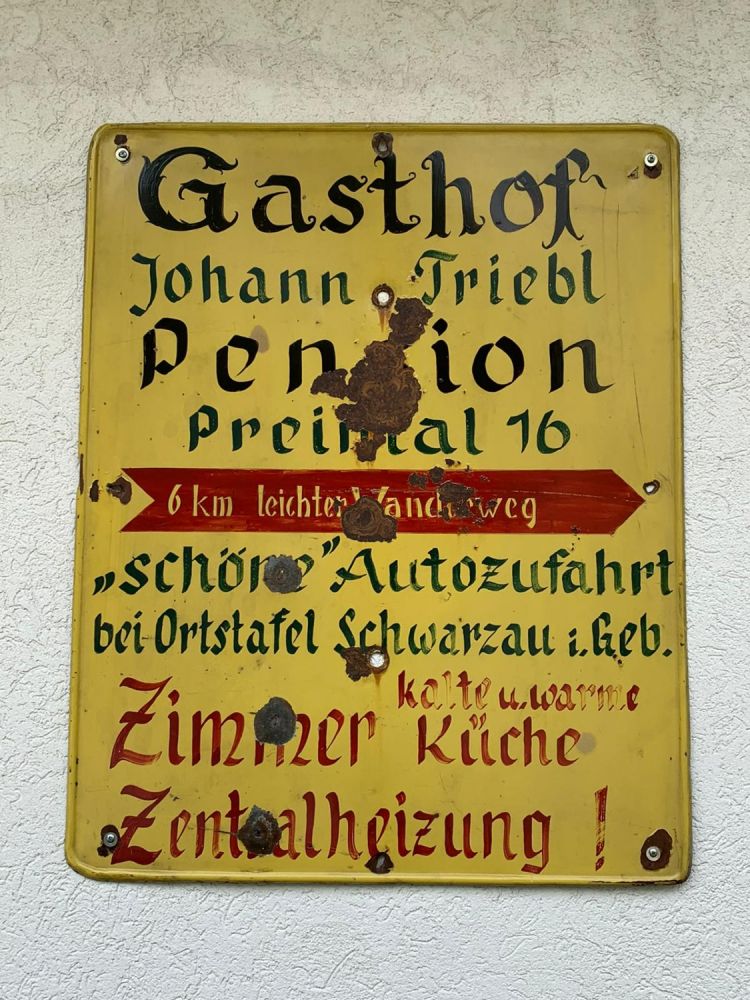 Gasthof
Johann Triebl
Pension
Preintal 16
6 km leichter Wanderweg
„schöne" Autozufahrt
bei Ortstafel Schwarzau i. Geb.
Zimmer kalte u. warme
Küche
Zentralheizung !